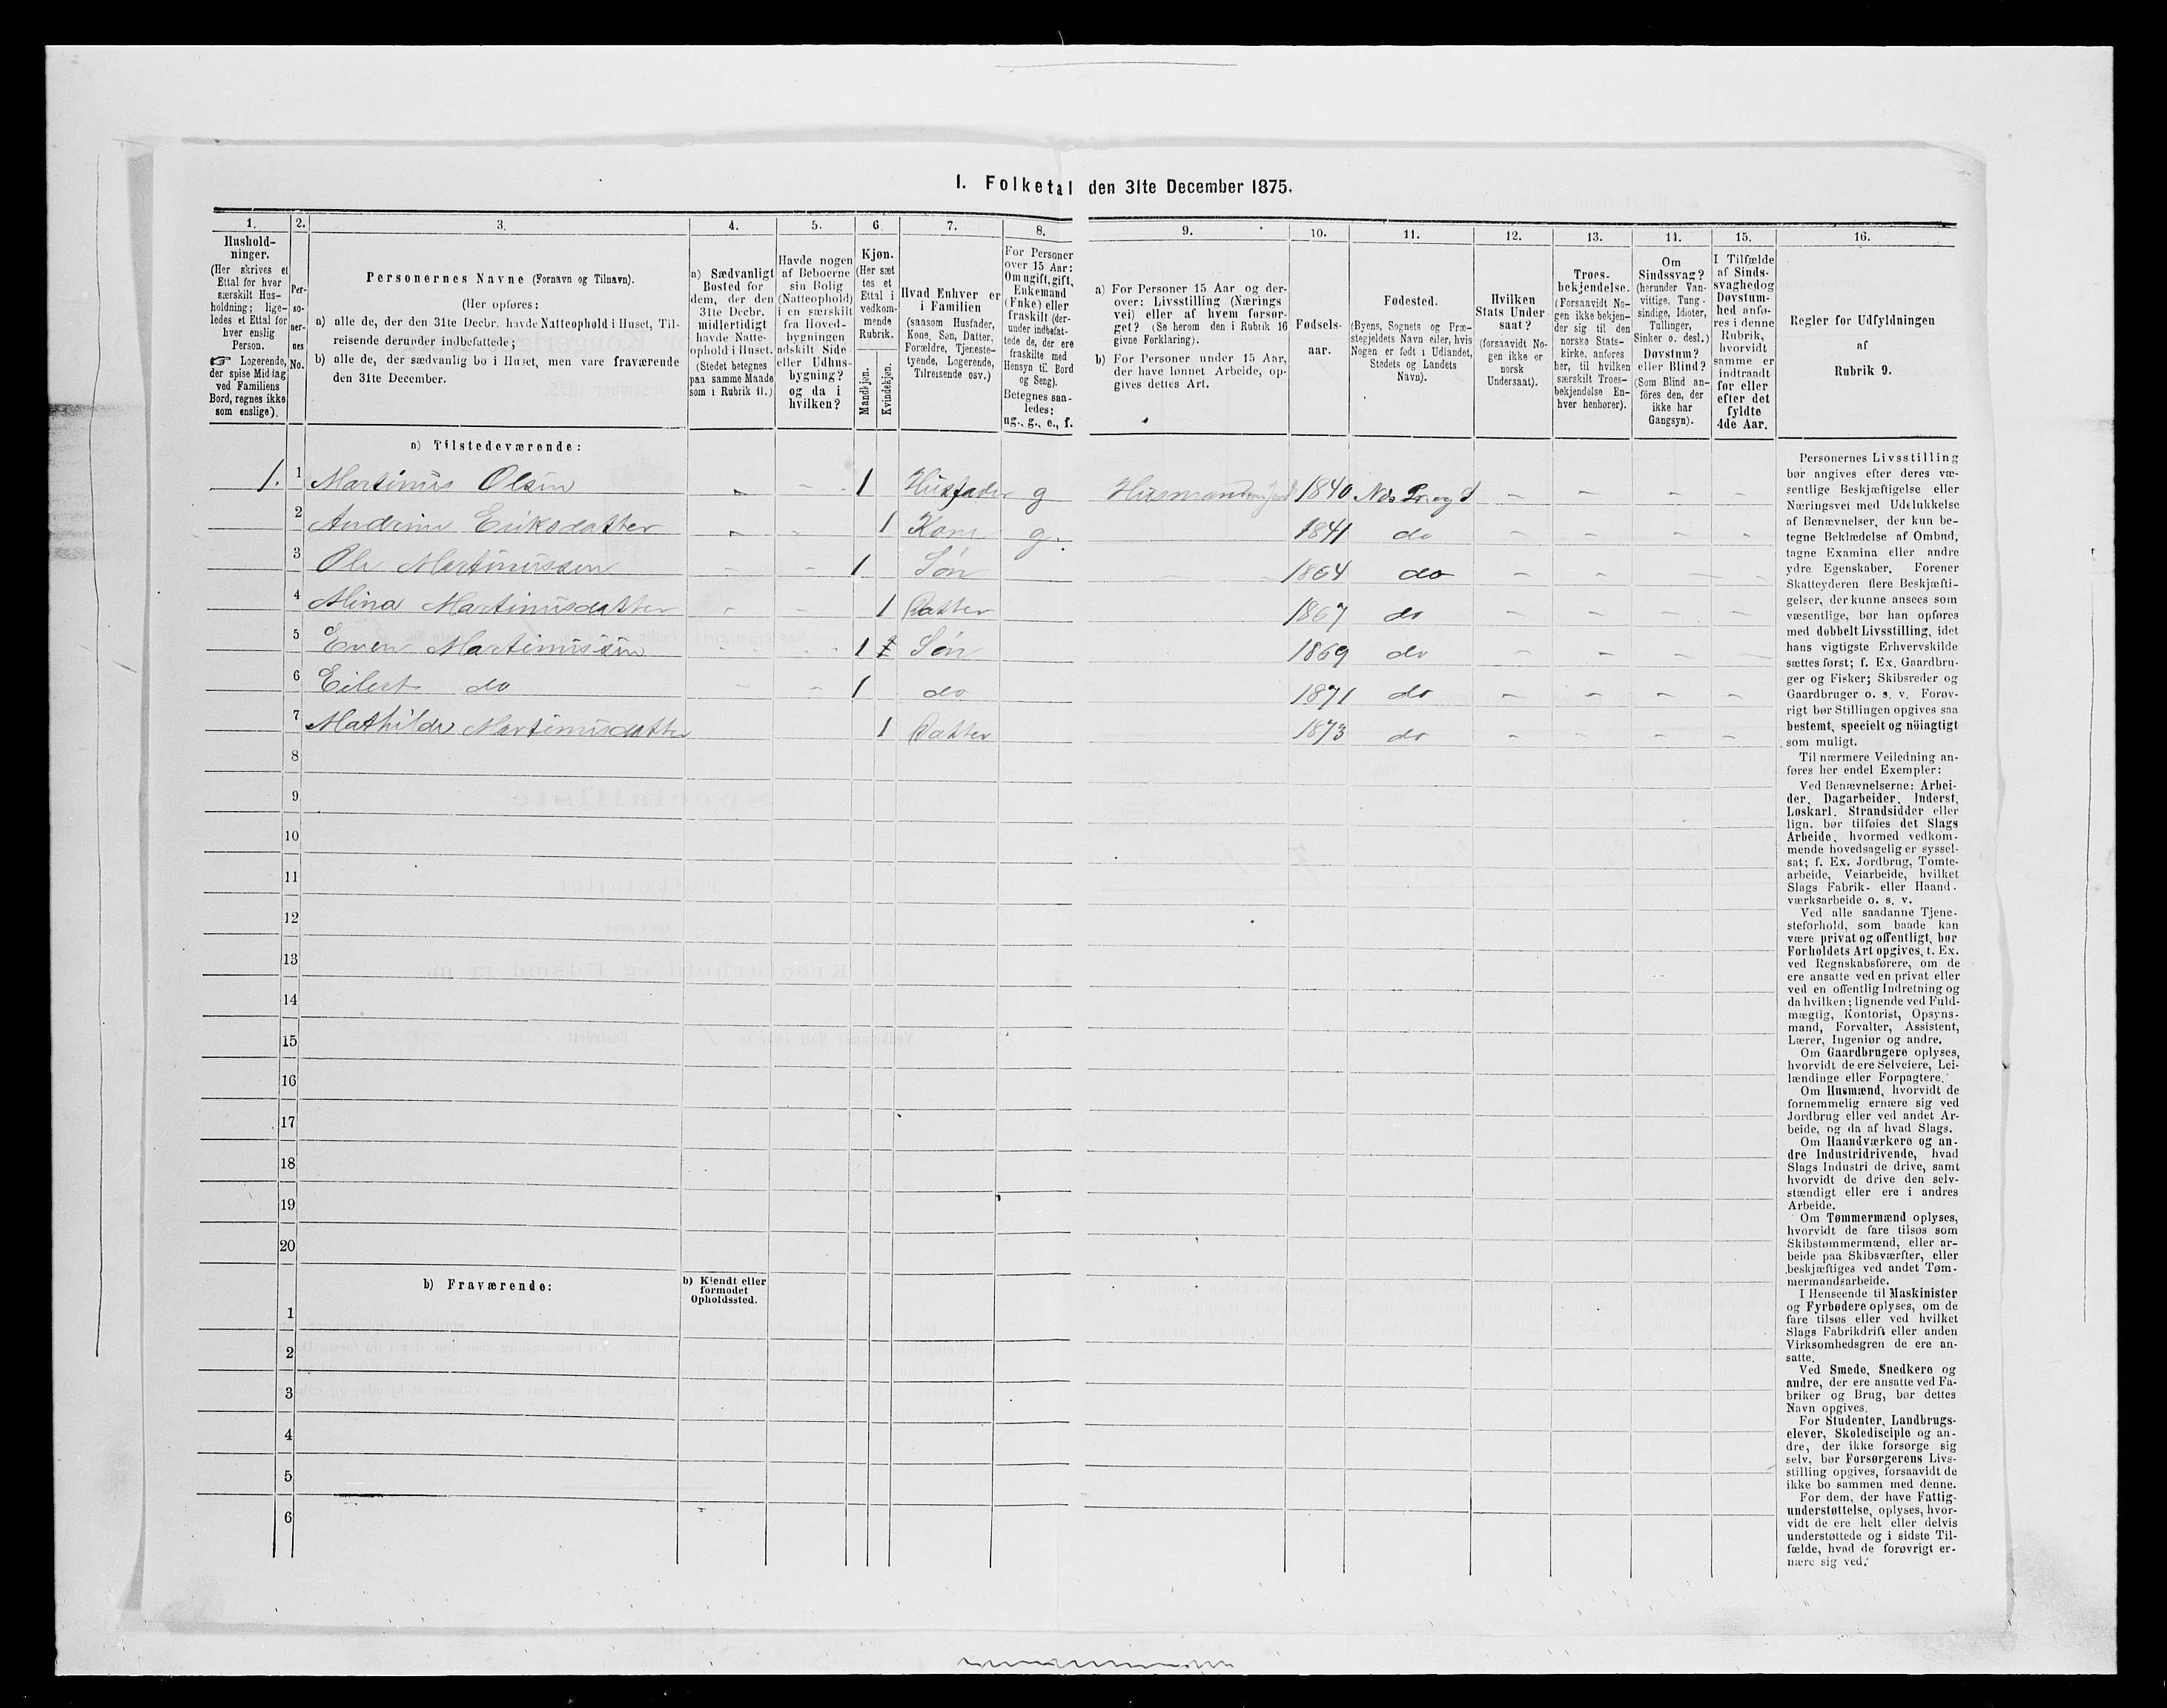 I. Folketal den 31te December 1875.
1. 2. 3. 4. 5. 6. 7. 8. 9. 10. 11. 12. 13. 14. 15. 16.
Hushold-
ninger.
(Her skrives et
Ettal for hver
særskilt Hus-
holdning; lige-
ledes et Ettal for
hver enslig
Person.
☞ Logerende,
der spise Middag
ved Familiens
Bord, regnes ikke
som enslige).
Per-
so-
ner-
nes
No.
Personernes Navne (Fornavn og Tilnavn).
(Her opføres:
a) alle de, der den 31te Decbr. havde Natteophold i Huset, Til-
reisende derunder indbefattede;
b) alle de, der sædvanlig bo i Huset, men vare fraværende
den 31te December.
a) Sædvanligt
Bosted for
dem, der den
31te Decbr.
midlertidigt
havde Natte-
ophold i Huset.
(Stedet betegnes
paa samme Maade
som i Rubrik 11.)
Havde nogen
af Beboerne
sin Bolig
(Natteophold)
i en særskilt
fra Hoved-
bygningen
adskilt Side-
eller Udhus-
bygning?
og da i
hvilken?
Kjøn.
(Her sæt
tes et
Ettal i
vedkom-
mende
Rubrik.
Mandkjøn.
Kvindekjøn.
Hvad Enhver er
i Familien
(saasom Husfader,
Kone, Søn, Datter,
Forældre, Tjeneste-
tyende, Logerende,
Tilreisende osv.)
For Personer
over 15 Aar:
Om ugift, gift,
Enkemand
(Enke) eller
fraskilt (der-
under indbefat-
tede de, der ere
fraskilte med
Hensyn til Bord
og Seng).
Betegnes saa-
ledes:
ug., g., e., f.
a) For Personer 15 Aar og der-
over: Livsstilling (Nærings
vei) eller af hvem forsør-
get? (Se herom den i Rubrik 16
givne Forklaring).
b) For Personer under 15 Aar,
der have lønnet Arbeide, op-
gives dettes Art.
Fødsels-
aar.
Fødested.
(Byens, Sognets og Præ-
stegjeldets Navn eller, hvis
Nogen er født i Udlandet,
Stedets og Landets
Navn).
Hvilken
Stats Under
saat?
(forsaavidt No-
gen ikke er
norsk
Undersaat).
Troes-
bekjendelse.
(Forsaavidt No-
gen ikke bekjen-
der sig til den
norske Stats-
kirke, anføres
her, til hvilken
særskilt Troes-
bekjendelse En-
hver henhører).
Om
Sindssvag?
(herunder Van-
vittige, Tung-
sindige, Idioter,
Tullinger,
Sinker o. desl.)
Døvstum?
eller Blind?
(Som Blind an-
føres den, der
ikke har
Gangsyn).
I Tilfælde
af Sinds-
svaghed og
Døvstum-
hed anfø-
res i denne
Rubrik,
hvorvidt
samme er
indtraadt
før eller
efter det
fyldte
4de Aar.
Regler for Udfyldningen
af
Rubrik 9.
a) Tilstedeværende:
1. 1 Martinus Olsen - - 1 Husfader g Husmand 1840 - - - -
2 Andrine Eriksdatter - - 1 Kone g. 1841 do - - - -
3 Ole Martinussen - - 1 Søn 1864 do - - - -
4 Mina Martinusdatter - - 1 Datter 1867 do - - - -
5 Even Martinussen - - 1 Søn 1869 do - - - -
6 Eilert do - - 1 do 1871 do - - - -
7 Mathilde Martinusdatter 1 Datter 1873 do - - - -
8
9
10
11
12
13
14
15
16
17
18
19
20
b) Fraværende:
b) Kjendt eller
formodet
Opholdssted.
1
2
3
4
5
6
Personernes Livsstilling
bør angives efter deres væ-
sentlige Beskjæftigelse eller
Næringsvei med Udelukkelse
af Benævnelser, der kun be-
tegne Beklædelse af Ombud,
tagne Examina eller andre
ydre Egenskaber. Forener
Skatteyderen flere Beskjæfti-
gelser, der kunne ansees som
væsentlige, bør han opføres
med dobbelt Livsstilling, idet
hans vigtigste Erhvervskilde
sættes først; f. Ex. Gaardbru-
ger og Fisker; Skibsreder og
Gaardbruger o. s. v. Forøv-
rigt bør Stillingen opgives saa
bestemt, specielt og nøiagtigt
som muligt.
Til nærmere Veiledning an-
føres her endel Exempler:
Ved Benævnelserne: Arbei-
der, Dagarbeider, Inderst,
Løskarl, Strandsidder eller
lign. bør tilføies det Slags
Arbeide, hvormed vedkom-
mende hovedsagelig er syssel-
sat; f. Ex. Jordbrug, Tomte-
arbeide, Veiarbeide, hvilket
Slags Fabrik- eller Haand-
værksarbeide o. s. v.
Ved alle saadanne Tjene-
steforhold, som baade kan
være privat og offentligt, bør
Forholdets Art opgives, t. Ex.
ved Regnskabsførere, om de
ere ansatte ved en privat eller
ved en offentlig Indretning og
da hvilken; lignende ved Fuld-
mægtig, Kontorist, Opsyns-
mand, Forvalter, Assistent,
Lærer, Ingeniør og andre.
Om Gaardbrugere oplyses,
hvorvidt de ere Selveiere, Lei-
lændinge eller Forpagtere.
Om Husmænd, hvorvidt de
fornemmelig ernære sig ved
Jordbrug eller ved andet Ar-
beide, og da af hvad Slags.
Om Haandværkere og an-
dre Industridrivende, hvad
Slags Industri de drive, samt
hvorvidt de drive den selv-
stændigt eller ere i andres
Arbeide.
Om Tømmermænd oplyses,
hvorvidt de fare tilsøs som
Skibstømmermænd, eller ar-
beide paa Skibsværfter, eller
beskjæftiges ved andet Tøm-
mermandsarbeide.
I Henseende til Maskinister
og Fyrbødere oplyses, om de
fare tilsøs eller ved hvilket
Slags Fabrikdrift eller anden
Virksomhedsgren de ere an-
satte.
Ved Smede, Snedkere og
andre, der ere ansatte ved Fa-
briker og Brug, bør dettes
Navn opgives.
For Studenter, Landbrugs-
elever, Skoledisciple og an-
dre, der ikke forsørge sig
selv, bør Forsørgerens Livs-
stilling opgives, forsaavidt de
ikke bo sammen med denne.
For dem, der have Fattig-
understøttelse, oplyses, hvor-
vidt de ere helt eller delvis
understøttede og i sidste Til-
fælde, hvad de forøvrigt er-
nære sig ved.